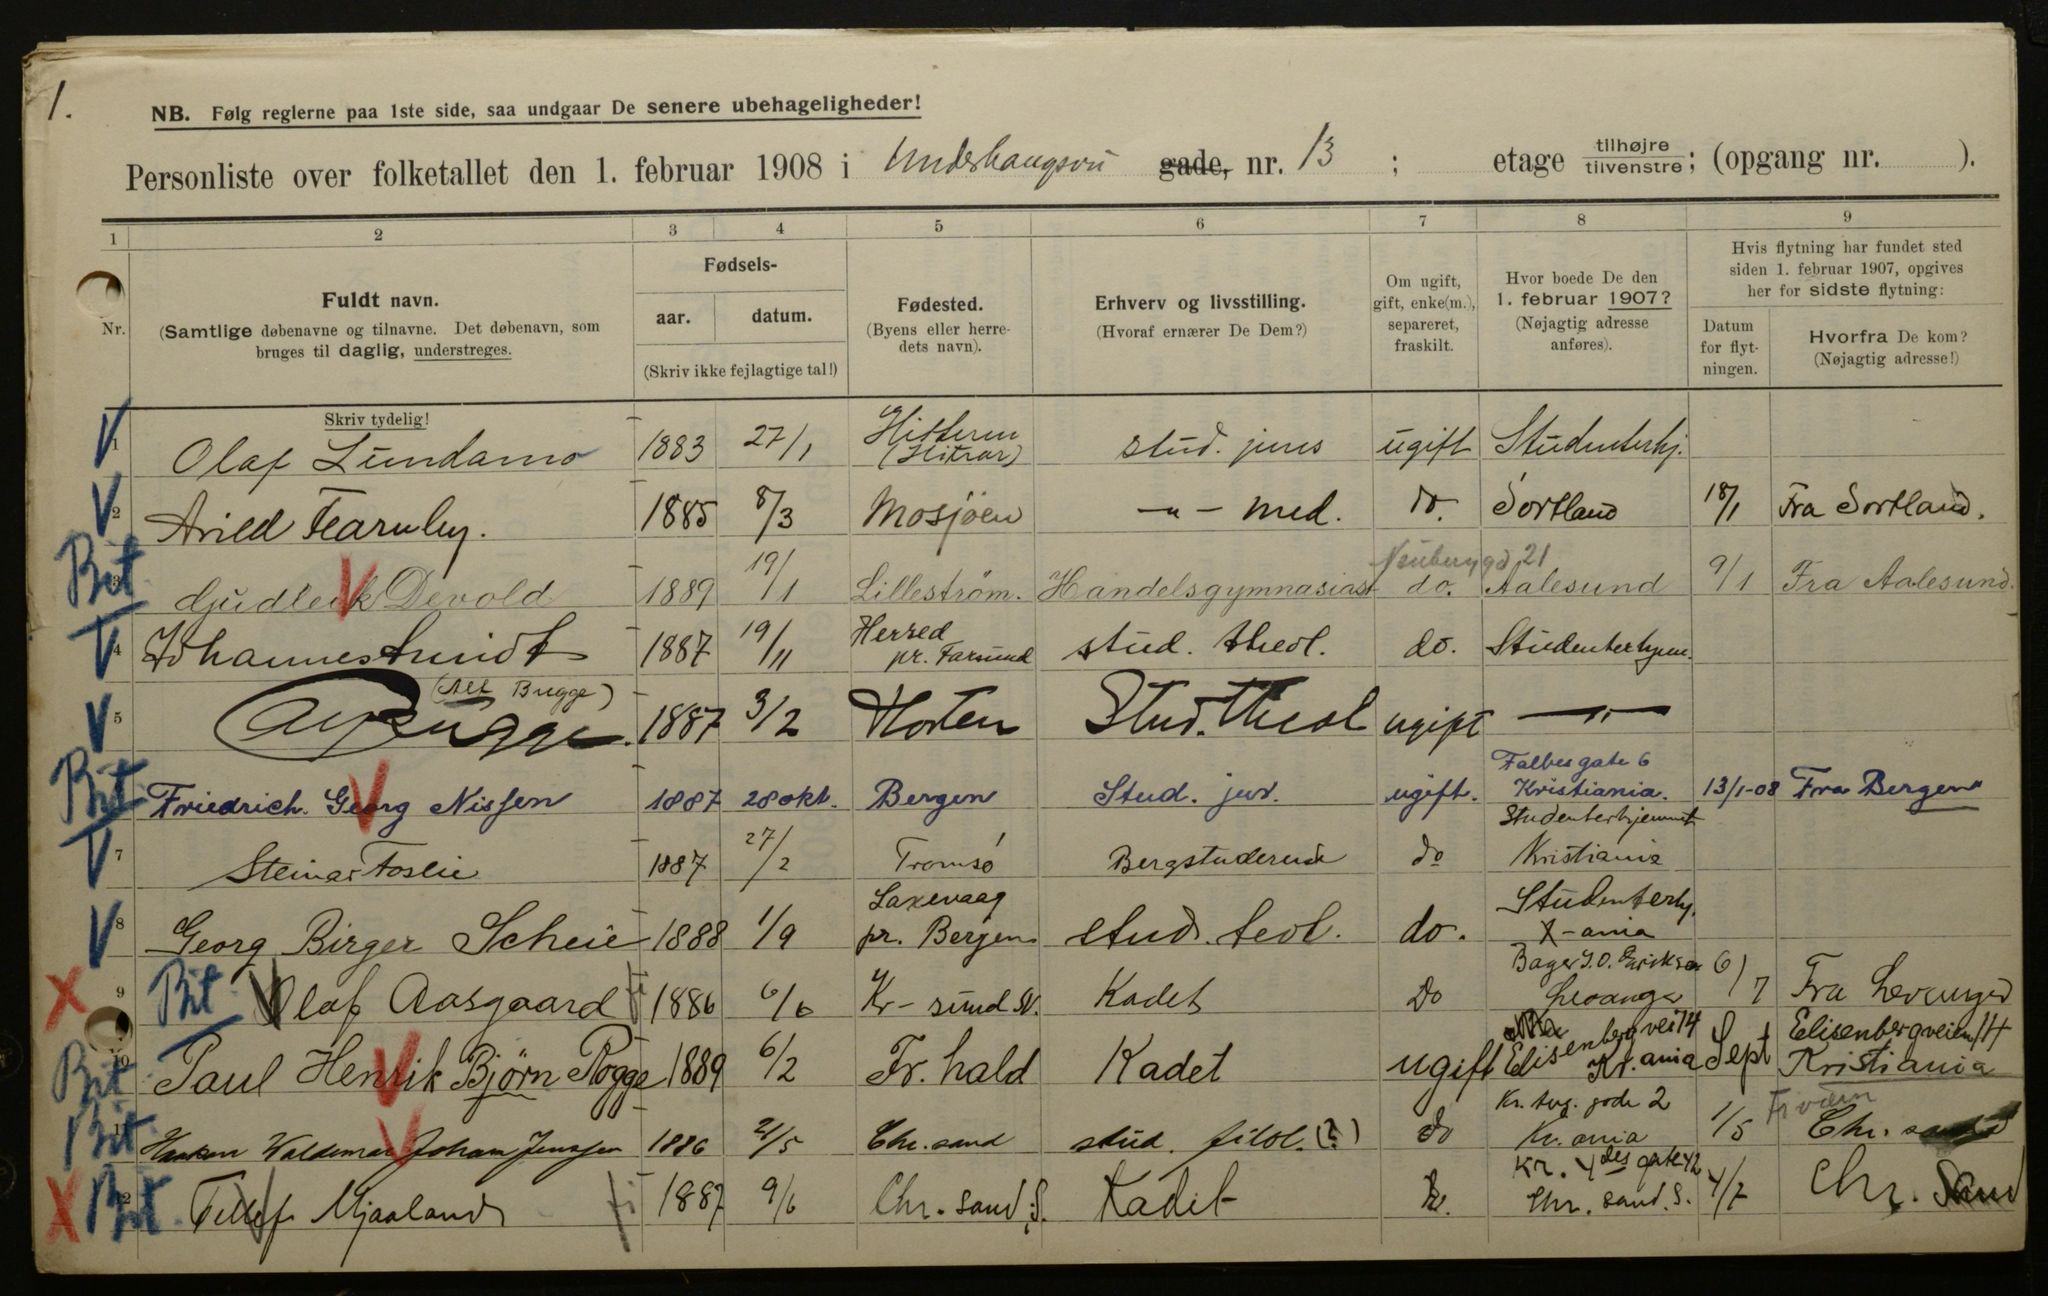 1.
NB. Følg reglerne paa 1ste side, saa undgaar De senere ubehageligheder!
Personliste over folketallet den 1. februar 1908 i Underhaugsvei gade, nr. 13 ; etage tilhøjre tilvenstre; (opgang nr. ).
1 2 3 4 5 6 7 8 9
Nr.
Fuldt navn.
(Samtlige døbenavne og tilnavne. Det døbenavn, som
bruges til daglig, understreges.
Skriv tydelig!
Fødsels-
aar. datum.
(Skriv ikke fejlagtige tal!)
Fødested.
(Byens eller herre-
dets navn).
Erhverv og livsstilling.
(Hvoraf ernærer De Dem?)
Om ugift,
gift, enke(m.),
separeret,
fraskilt.
Hvor boede De den
1. februar 1907?
(Nøjagtig adresse
anføres).
Hvis flytning har fundet sted
siden 1. februar 1907, opgives
her for sidste flytning:
Datum
for flyt-
ningen.
Hvorfra De kom?
(Nøjagtig adresse!)
V 1 Olaf Lundamo 1883 27/1 Hitteren (Hitrar) stud. juris ugift Studenterhj.
V 2 Arild Fearnley. 1885 8/3 Mosjöen -"- med. do. Sortland 18/1 Fra Sortland.
Bit 3 Gudleik Devold 1889 19/1 Lilleström. Handelsgymnasiast do. 21 Aalesund 9/1 Fra Aalesund.
V 4 Johannes Smidt 1887 19/11 Herred pr. Farsund stud. theol. do. Studenterhjem.
V 5 (Alf Bugge) Alf Bugge. 1887 3/2 Horten Stud. theol ugift -"-
Bit Friedrich Georg Nissen 1887 28 okt. Bergen Stud. jur. ugift. Falbesgate 6 Kristiania. 13/1-08 Fra Bergen
V 7 Steinar Foslie 1887 27/2 Tromsö Bergstuderende do Studenterhjemmet Kristiania
V 8 Georg Birger Scheie 1888 1/9 Laxevaag pr. Bergen stud. teol. do. Studenterhj. X-ania
X 9 Bit. Olaf Aasgaard 1886 6/6 Kr-sund N. Kadet Do Bager J.O. Eriksen Levanger 6/7 Fra Levanger
Bit 10 Paul Henrik Bjørn Rogge 1889 6/2 Fr.hald Kadet ugift Elisenbergvei 14 Kr.ania Sept Elisenbergveien 14 Kristiania
Bit 11 Haakon Waldemar Johan Jenssen 1886 21/5 Chr.sand stud. filol. (?) do Kr. Aug. gade 2 Kr.ania 1/5 Chr. sand
X Bit 12 Tellef Mjaaland 1887 9/6 Chr. sand S. Kadet Do. Kr. 4des gate 42 Chr. sand. S. 4/7 Chr. Sand